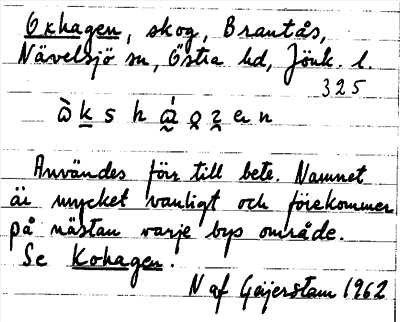 Oxhagen, skog, Brantås,
Nävelsjö sn, Östra hd, Jönk. l.
325
Användes förr till bete. Namnet
är mycket vanligt och förekommer
på nästan varje bys område.
Se Kohagen.
N af Geijerstam 1962